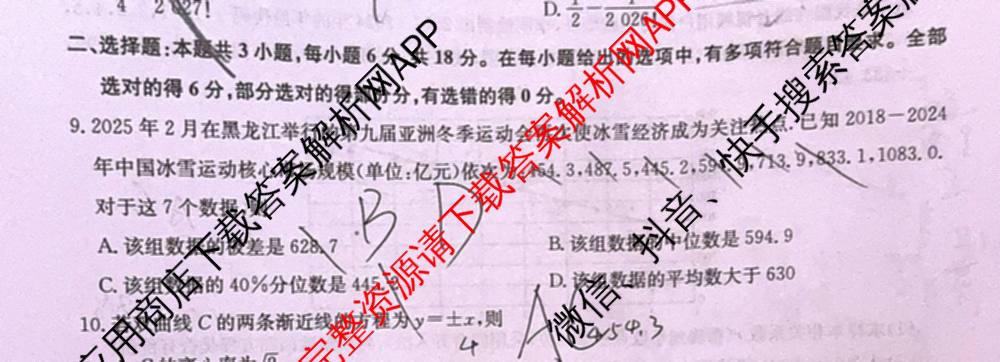 4 2 027! D. 1/2 - 1/2 026!
二、选择题:本题共 3 小题,每小题 6 分 共 18 分。在每小题给出 选项中,有多项符合题 求。全部
选对的得 6 分,部分选对的得 分,有选错的得 0 分。
9. 2025 年 2 月在黑龙江举行的 九届亚洲冬季运动会 次使冰雪经济成为关注 点. 已知 2018-2024
年中国冰雪运动核心 规模(单位:亿元)依次为 454.3,487.5,445.2,594. 713.9,833.1,1083.0.
对于这 7 个数据
A. 该组数据的极差是 628.7 B. 该组数据 中位数是 594.9
C. 该组数据的 40%分位数是 445. D. 该组数据的平均数大于 630
10. 曲线 C 的两条渐近线 方程为 y=±x,则
B D
A 454.3
4
应用商店下载答案解析网APP
完整资源请下载答案解析网APP
微信、抖音、快手搜索答案解